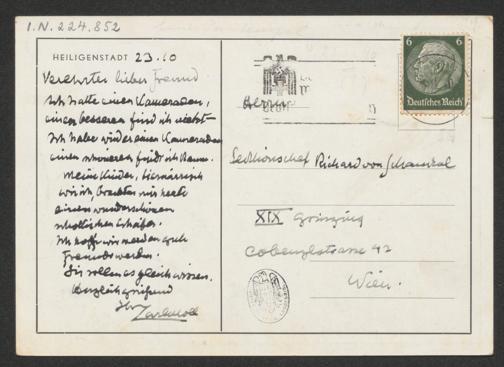 I.N. 224.852
HEILIGENSTADT 23.10
Verehrter lieber Freund
Ich hatte einen Kameraden,
einen besseren find ich nicht
Ich habe wieder einen Kameraden
einen schöneren findt ich kaum.
Meine Kinder,
wie ich, brachten mir heute
einen wunderschönen
schottischen Schäfer.
Ich hoffe wir werden gute
Freunde werden.
Sie sollen es gleich wissen.
Herzlich grüssend
Ihr
Carl Moll
6 6
Deutsches Reich
Herrn
Sektionschef Richard von Schaukal
XIX Grinzing
Cobenzlstrasse 42
Wien.